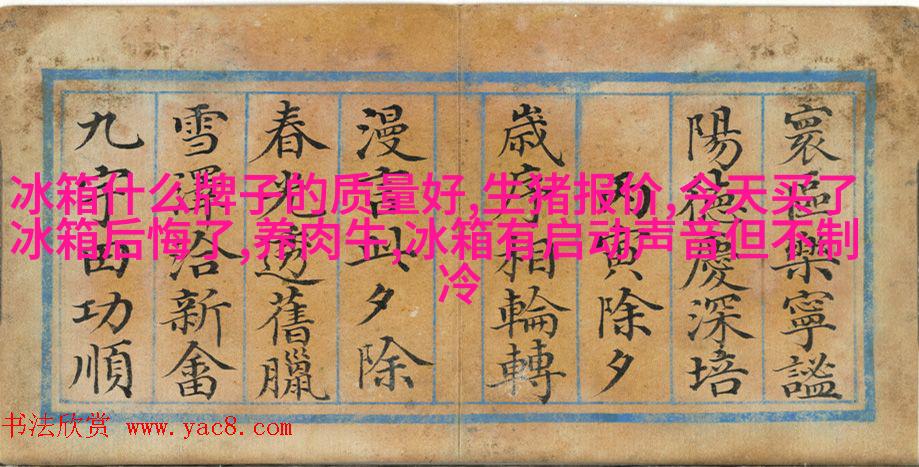 冰箱什么牌子的质量好,生猪报价,今天买了
冰箱后悔了,养肉牛,冰箱有启动声音但不制
冷
寰區樂寧謐
陽德慶深培
丙寅除夕
歲序相輪轉
漫言此夕除
春光透舊臘
雪澤洽新畬
九宇功順
书法欣赏 www.yac8.com